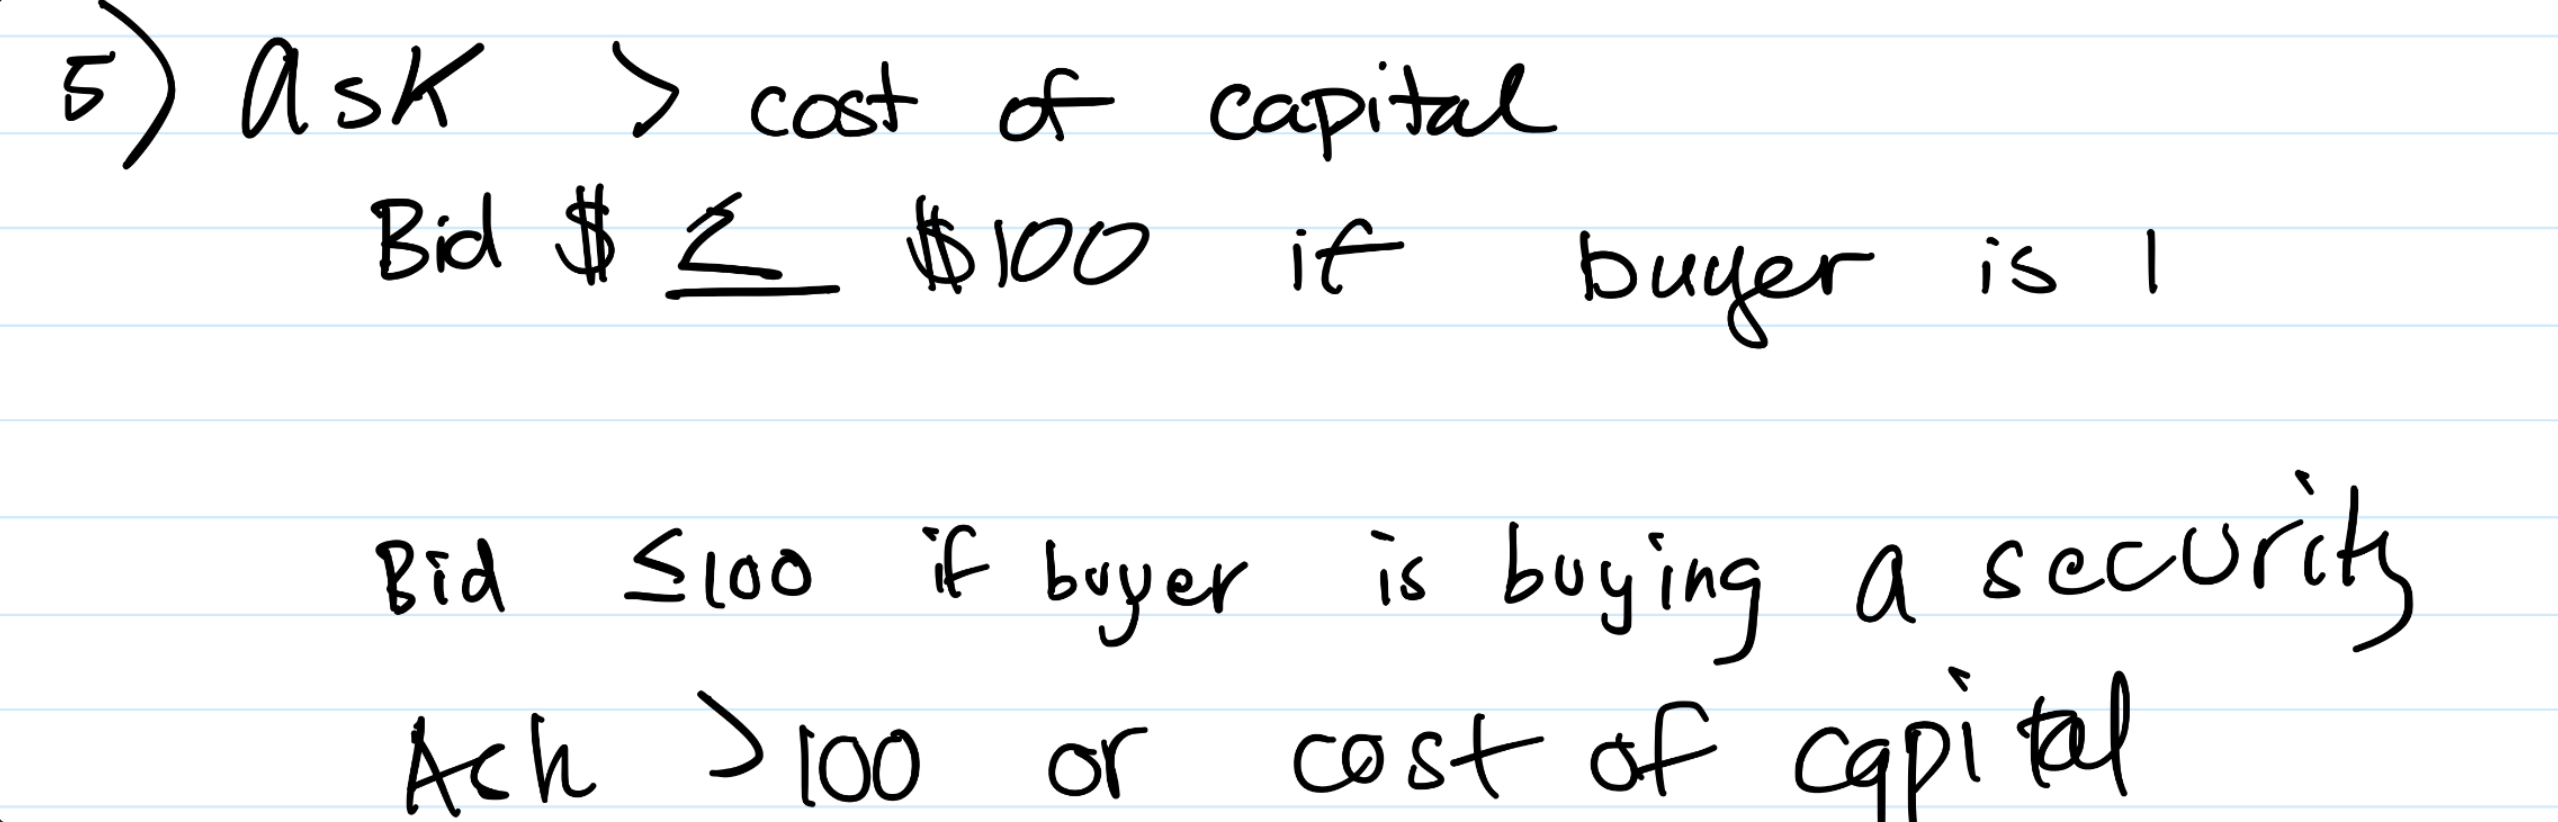 5) Ask > cost of capital
Bid $ ≤ $100 if buyer is 1
Bid ≤100 if buyer is buying a security
Ach >100 or cost of capital